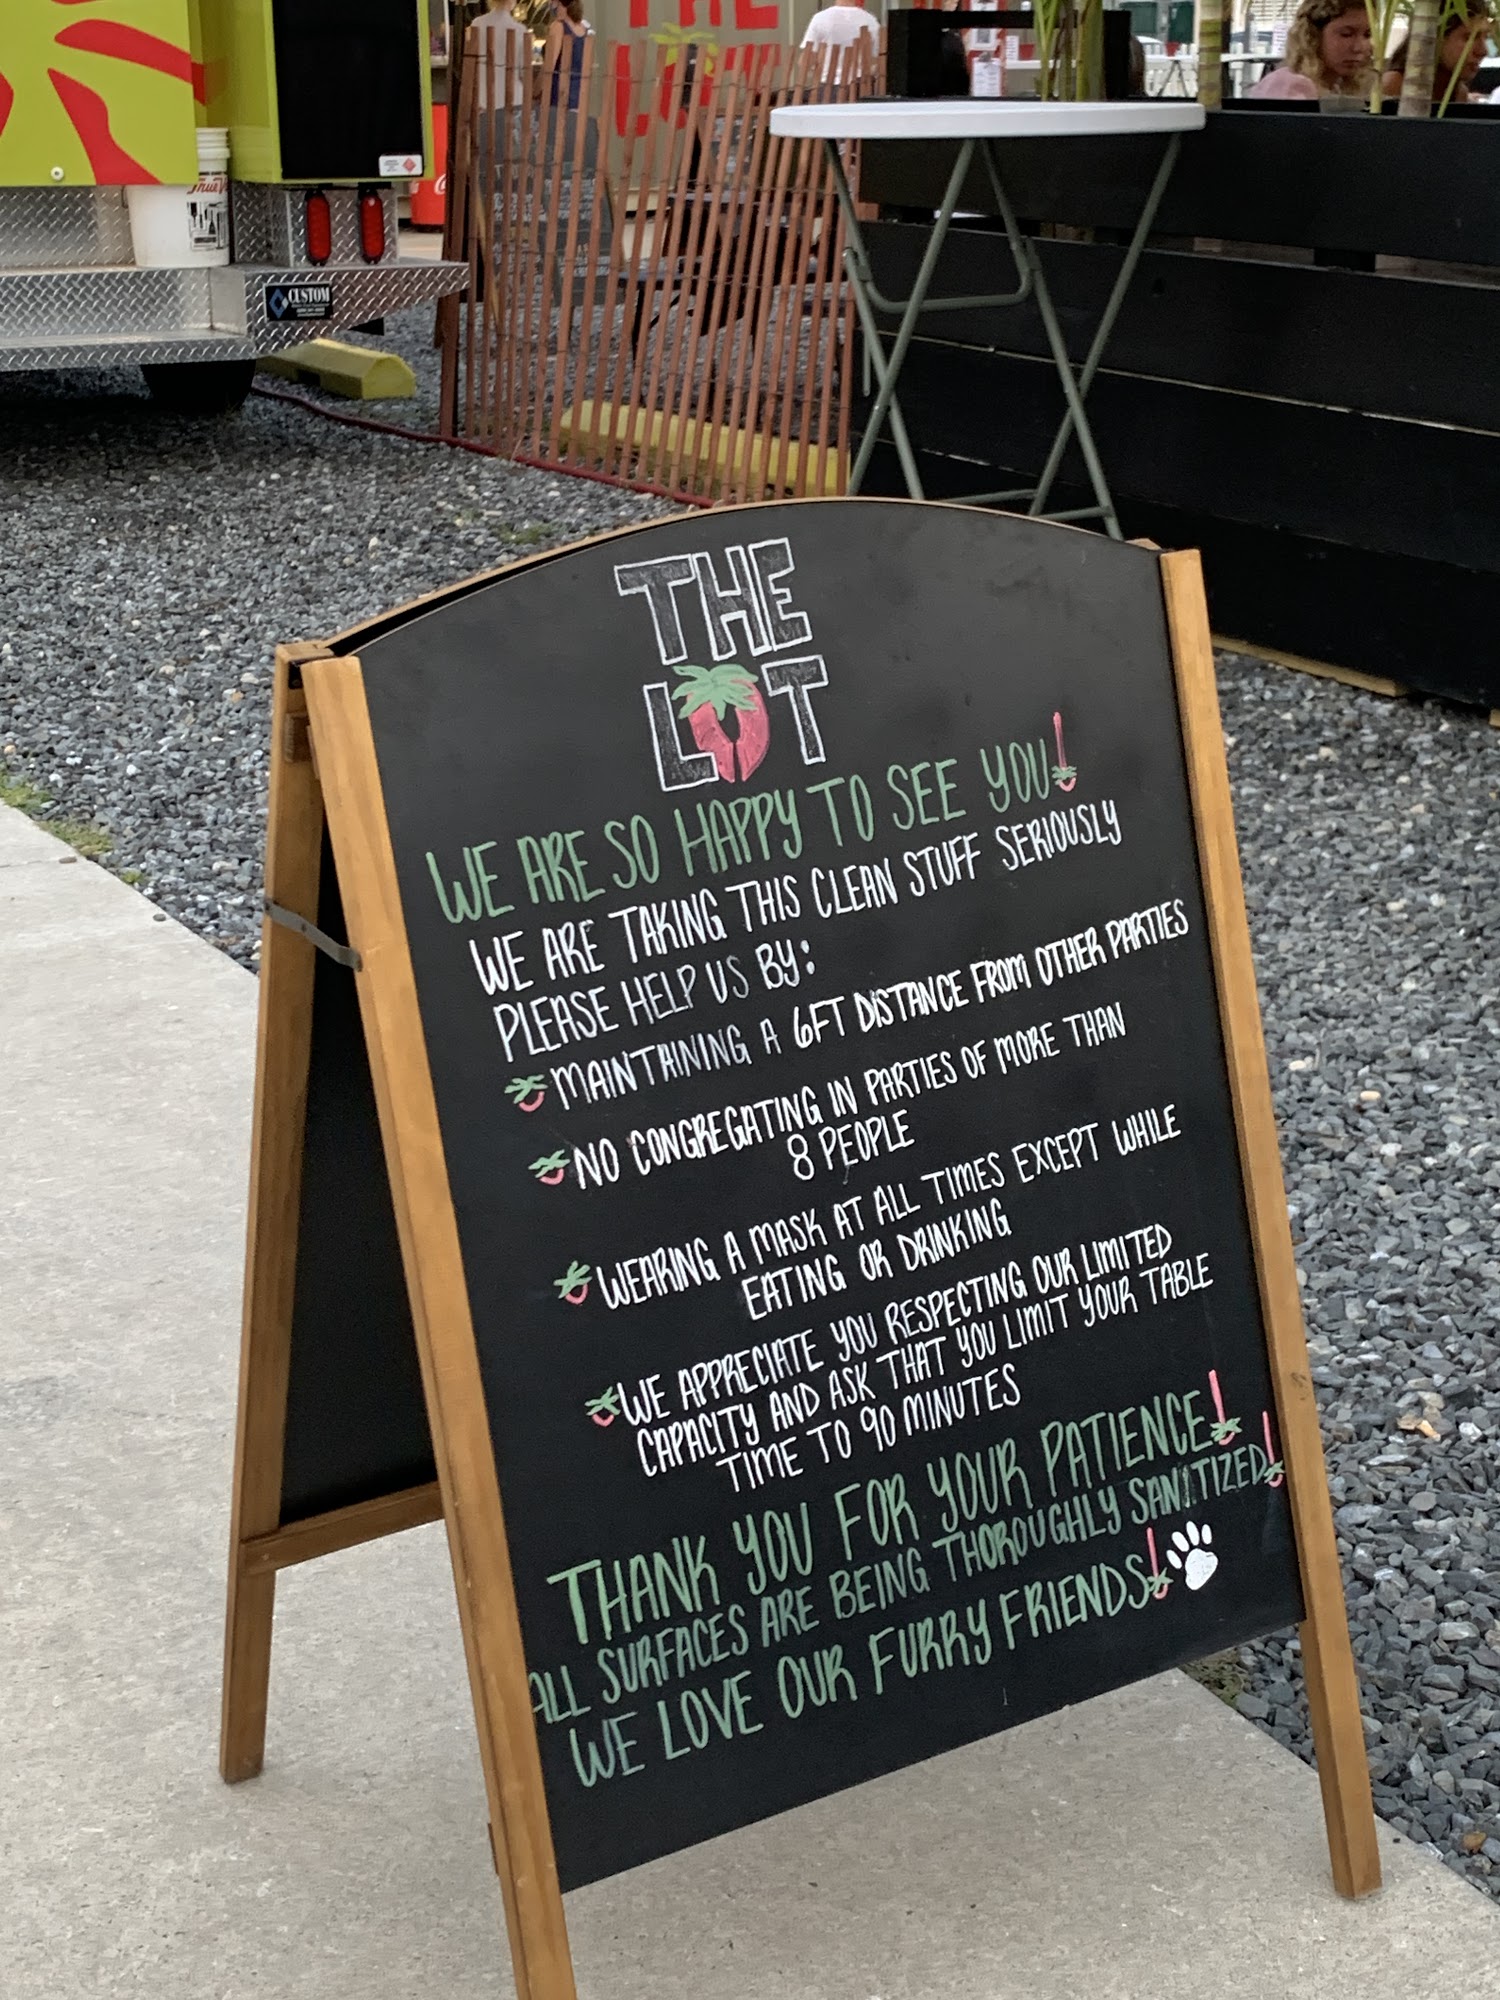 THE
LOT
TrueV
CUSTOM
THE
LOT
WE ARE SO HAPPY TO SEE YOU!
WE ARE TAKING THIS CLEAN STUFF SERIOUSLY
PLEASE HELP US BY:
MAINTAINING A 6FT DISTANCE FROM OTHER PARTIES
NO CONGREGATING IN PARTIES OF MORE THAN
8 PEOPLE
WEARING A MASK AT ALL TIMES EXCEPT WHILE
EATING OR DRINKING
WE APPRECIATE YOU RESPECTING OUR LIMITED
CAPACITY AND ASK THAT YOU LIMIT YOUR TABLE
TIME TO 90 MINUTES
THANK YOU FOR YOUR PATIENCE!
ALL SURFACES ARE BEING THOROUGHLY SANITIZED!
WE LOVE OUR FURRY FRIENDS!